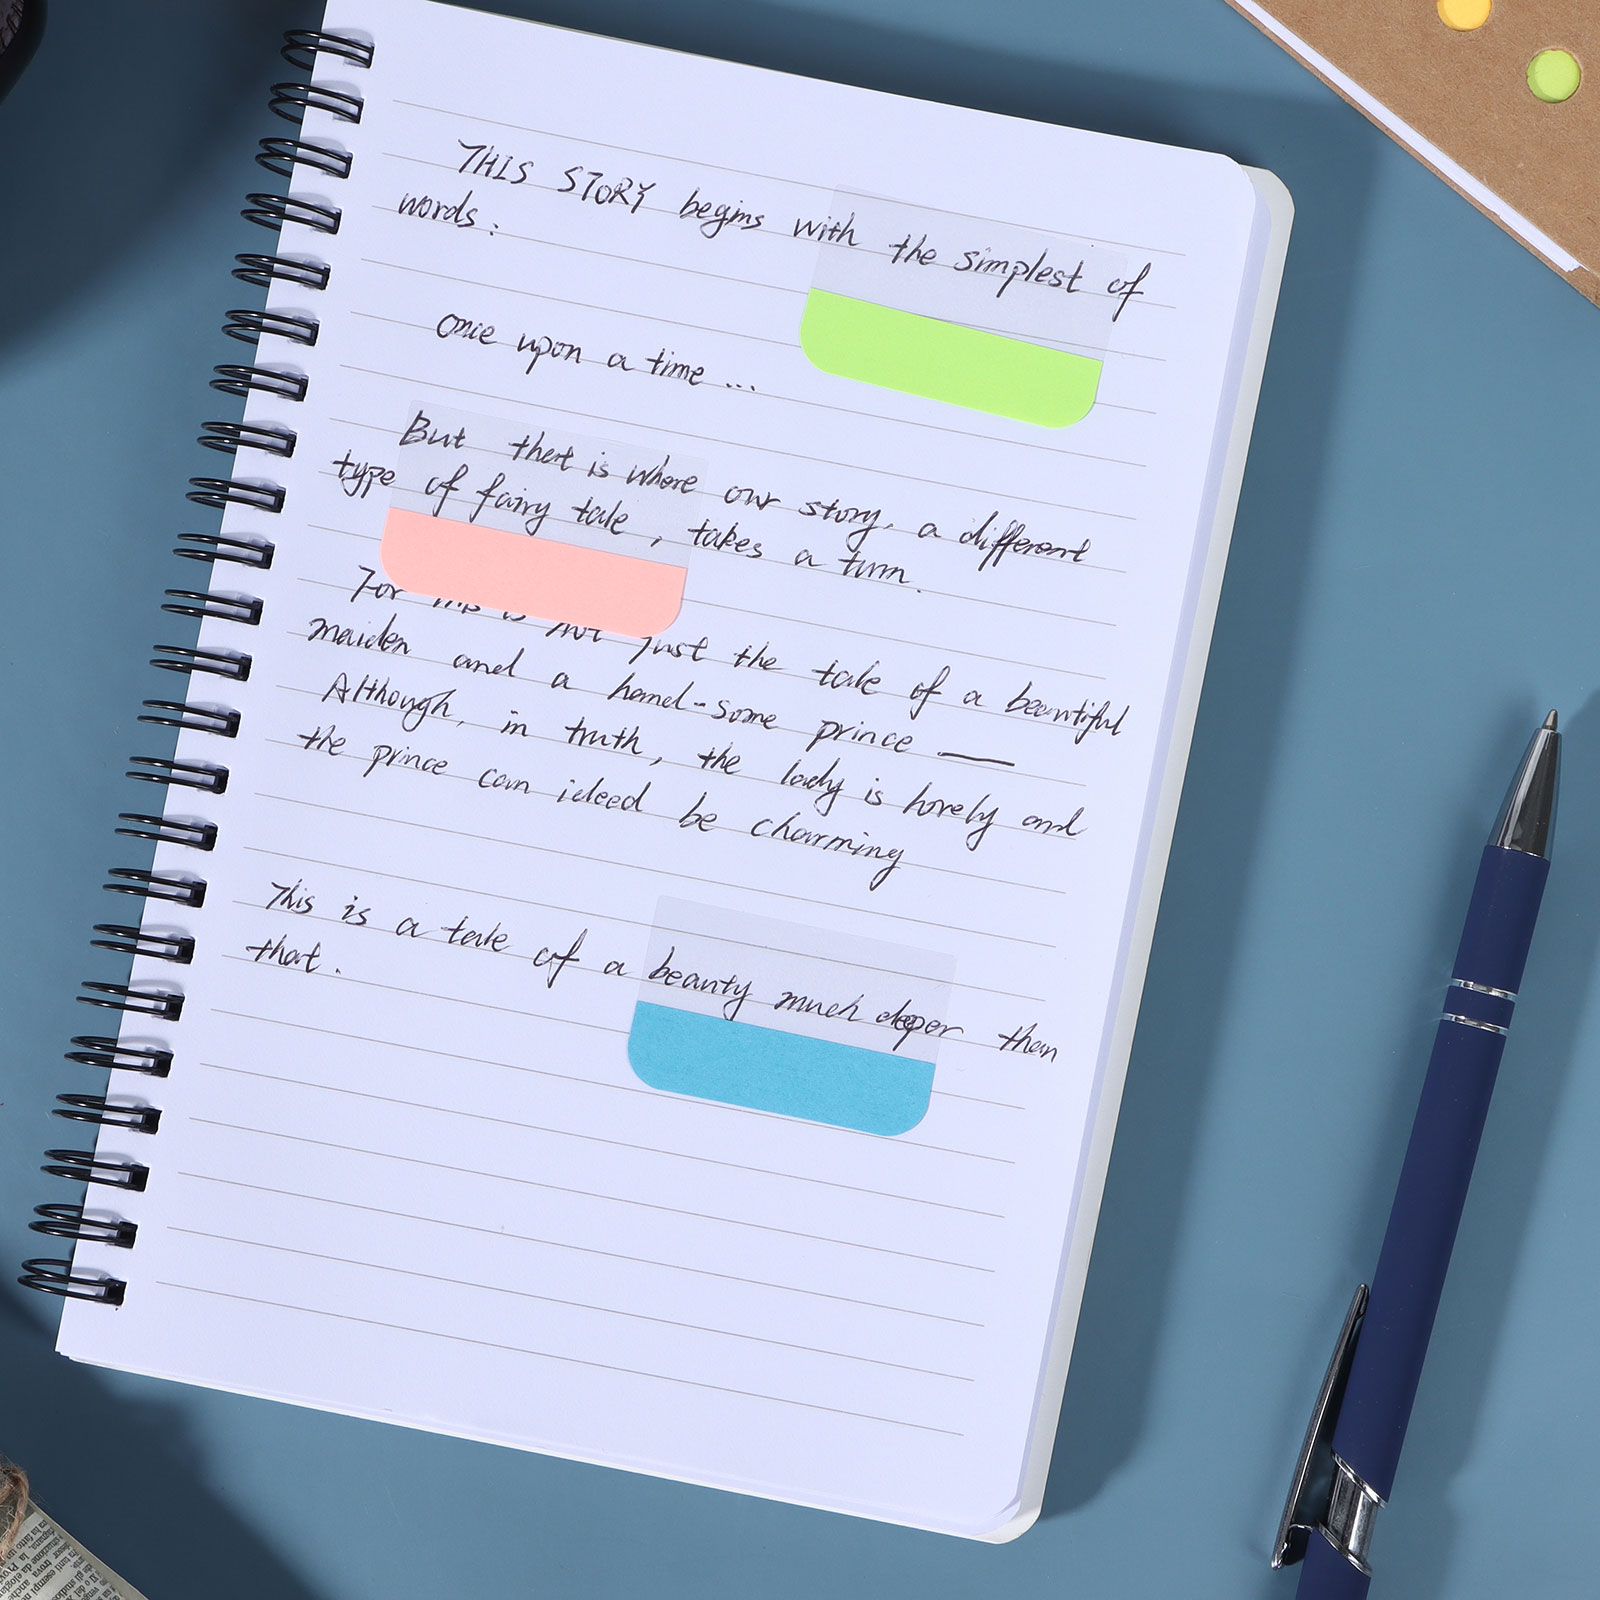 THIS STORY begins with the simplest of
words:
once upon a time ...
But that is where our story, a different
type of fairy tale, takes a turn.
For this is not just the tale of a beautiful
maiden and a hand-some prince —
Although, in truth, the lady is lovely and
the prince can ideed be charming
This is a tale of a beauty much deeper than
that.